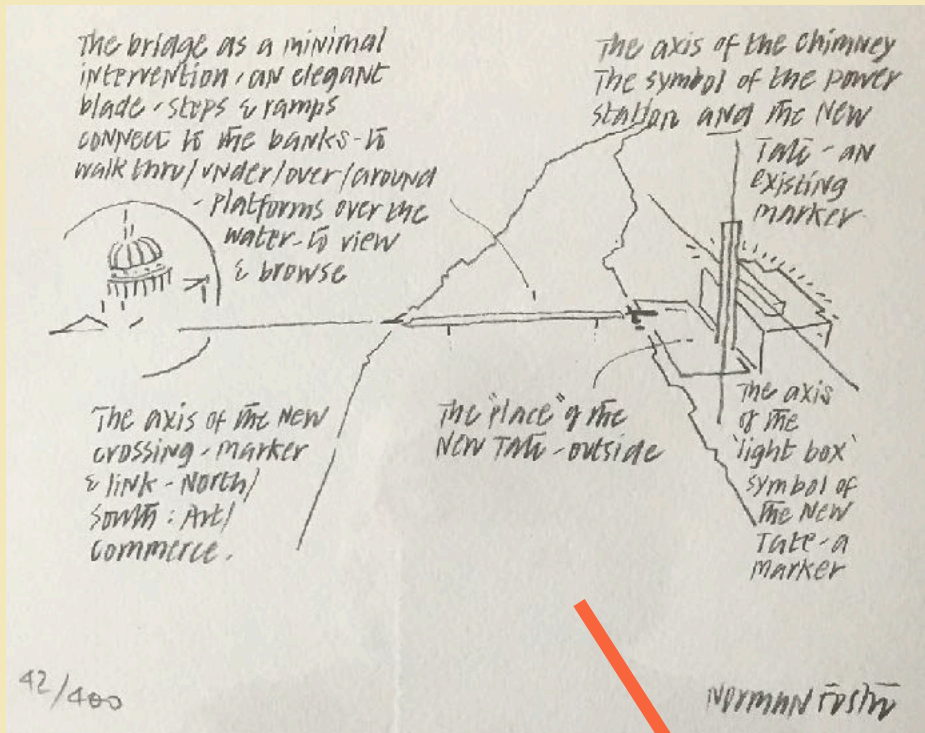 The bridge as a minimal
intervention, an elegant
blade, steps & ramps
connect to the banks - to
walk thru/under/over/around
- platforms over the
water - to view
& browse
The axis of the chimney
The symbol of the power
station and the New
Tate - an
existing
marker
The axis of the New
crossing - marker
& link - North/
South : Art/
Commerce.
The "place" of the
New Tate - outside
The axis
of the
'light box'
symbol of
the New
Tate - a
marker
42/400
Norman Foster